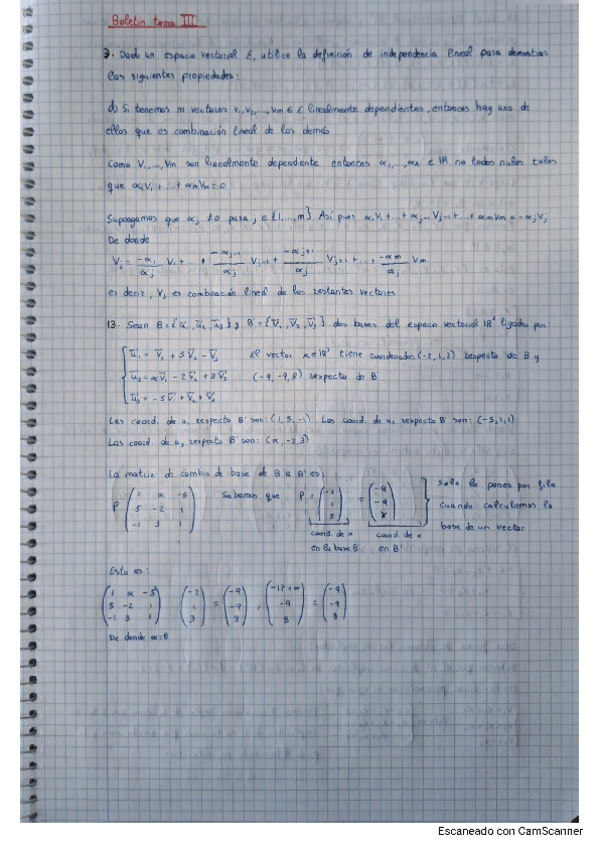 Boletín tema III
3. Dado un espacio vectorial E, utilice la definición de independencia lineal para demostrar
las siguientes propiedades:
d) Si tenemos m vectores v₁, v₂, ..., vm ∈ E linealmente dependientes, entonces hay uno de
ellos que es combinación lineal de los demás
Como V₁, ..., Vm son linealmente dependiente entonces α₁, ..., αn ∈ IR no todos nulos tales
que α₁V₁ + ... + αmVm = 0
Supongamos que αj ≠ 0 para j ∈ {1, ..., m} Así pues α₁V₁ + ... + αj-1 Vj-1 + ... + αmVm = -αjVj
De donde
Vj = -α₁/αj V₁ + ... + -αj-1/αj Vj-1 + -αj+1/αj Vj+1 + ... + -αm/αj Vm
es decir, Vj es combinación lineal de los restantes vectores
13. Sean B = {u₁, u₂, u₃} y B' = {V₁, V₂, V₃} dos bases del espacio vectorial IR³ ligadas por:
u₁ = V₁ + 5V₂ - V₃ El vector x ∈ IR³ tiene coordenadas (-2, 1, 3) respecto de B y
u₂ = αV₁ - 2V₂ + 3V₃ (-9, -9, 8) respecto de B
u₃ = -5V₁ + V₂ + V₃
Las coord. de u₁ respecto B' son: (1, 5, -1) Las coord. de u₃ respecto B' son: (-5, 1, 1)
Las coord. de u₂ respecto B' son: (α, -2, 3)
La matriz de cambio de base de B a B' es:
P (1 α -5 / 5 -2 1 / -1 3 1) Sabemos que P = (-2 / 1 / 3) = (-9 / -9 / 8) Solo lo pones por fila
cuando calculamos la
base de un vector
coord. de x en la base B
coord. de x en B'
Esto es:
(1 α -5 / 5 -2 1 / -1 3 1) (-2 / 1 / 3) = (-9 / -9 / 8), (-17+α / -9 / 8) = (-9 / -9 / 8)
De donde α=8
Escaneado con CamScanner